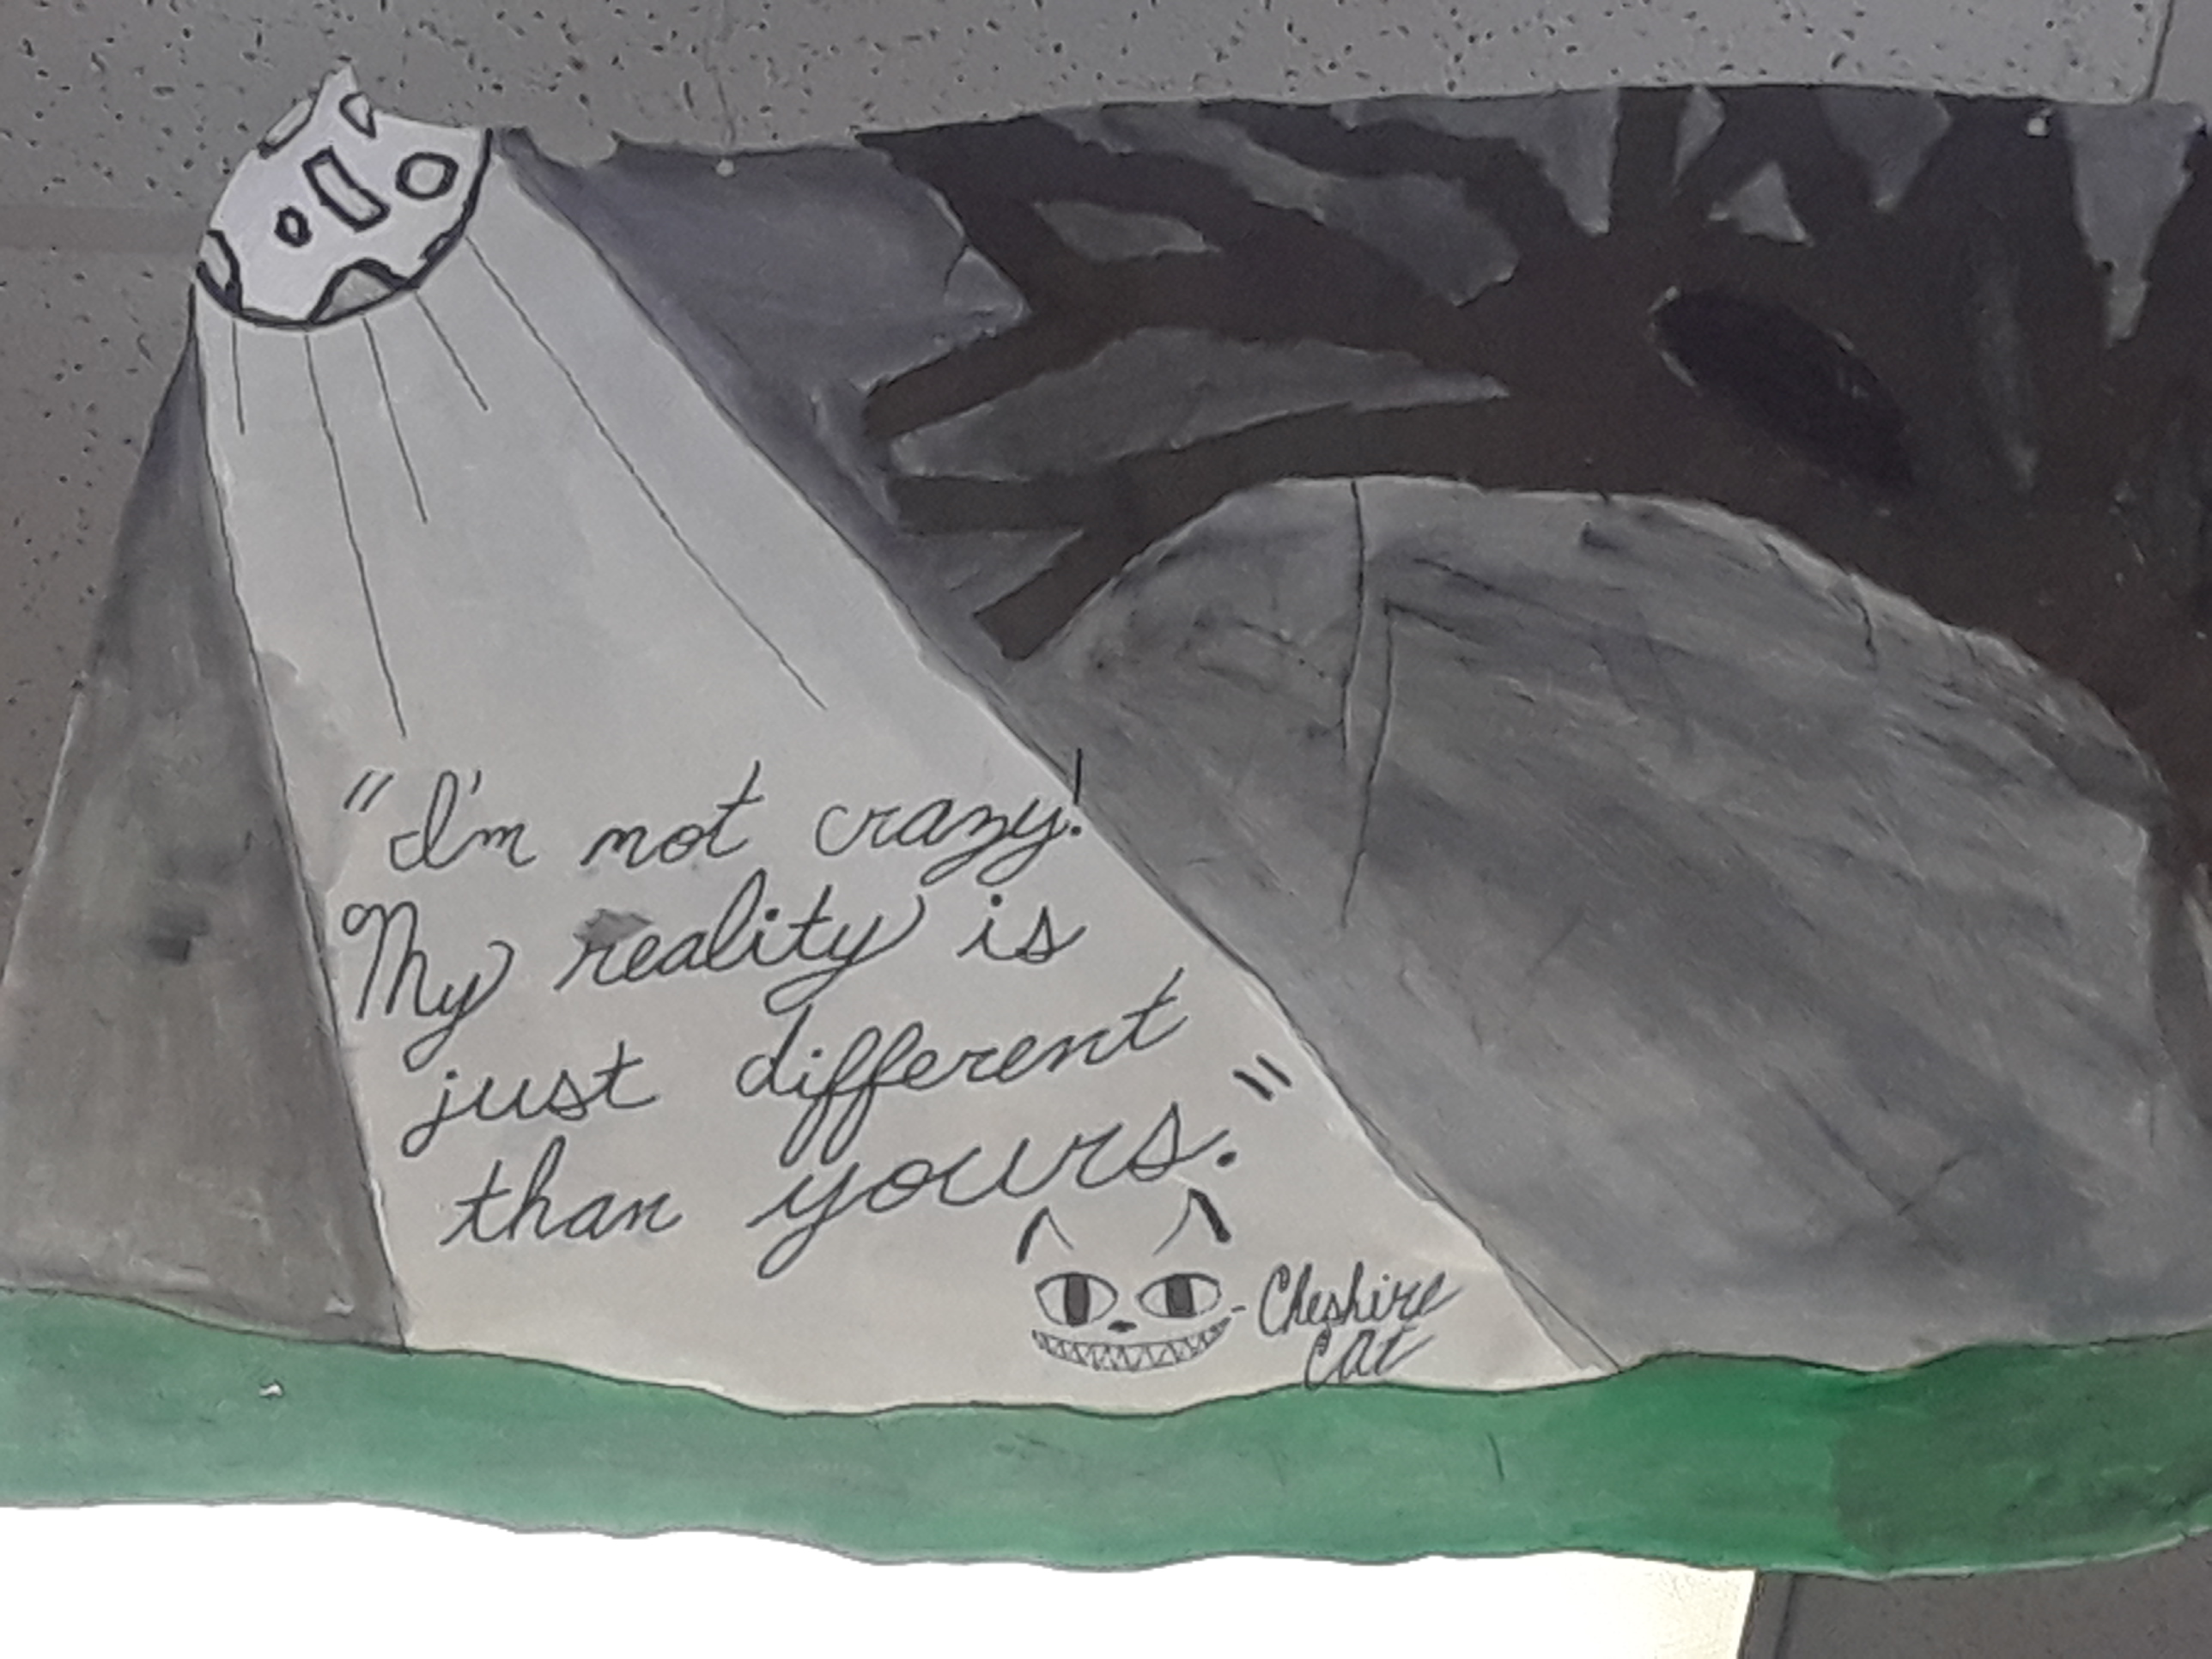 "I'm not crazy!
My reality is
just different
than yours."
- Cheshire
Cat